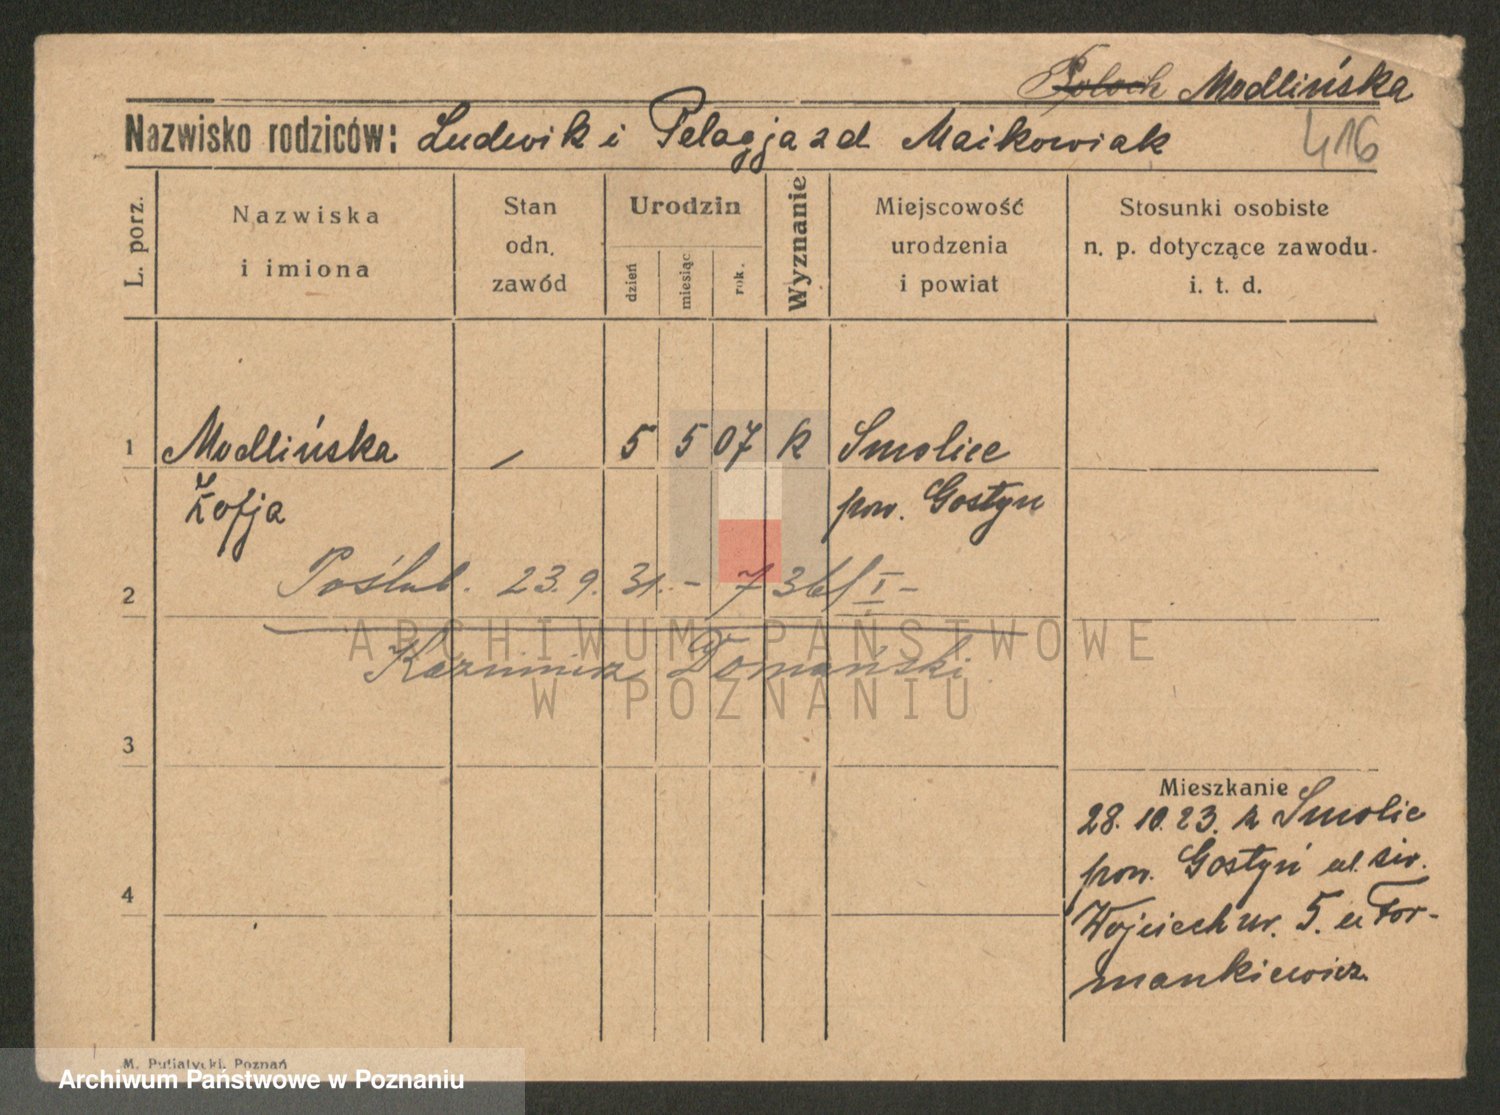 Modlińska
Nazwisko rodziców: Ludwik i Pelagja zd Maikowiak
416
L. porz.
Nazwiska
i imiona
Stan
odn.
zawód
Urodzin
dzień
miesiąc
rok.
Wyznanie
Miejscowość
urodzenia
i powiat
Stosunki osobiste
n. p. dotyczące zawodu
i. t. d.
1 Modlińska 5 5 07 k Smolice
Zofja pow. Gostyn
2 Poślub. 23.9.31.-
Kazimierz Domański
ARCHIWUM PAŃSTWOWE
W POZNANIU
3
Mieszkanie
28.10.23. z Smolic
pow. Gostyń ul. św.
4
Wojciech nr. 5. u For-
mankiewicz
M. Putiatycki, Poznań
Archiwum Państwowe w Poznaniu